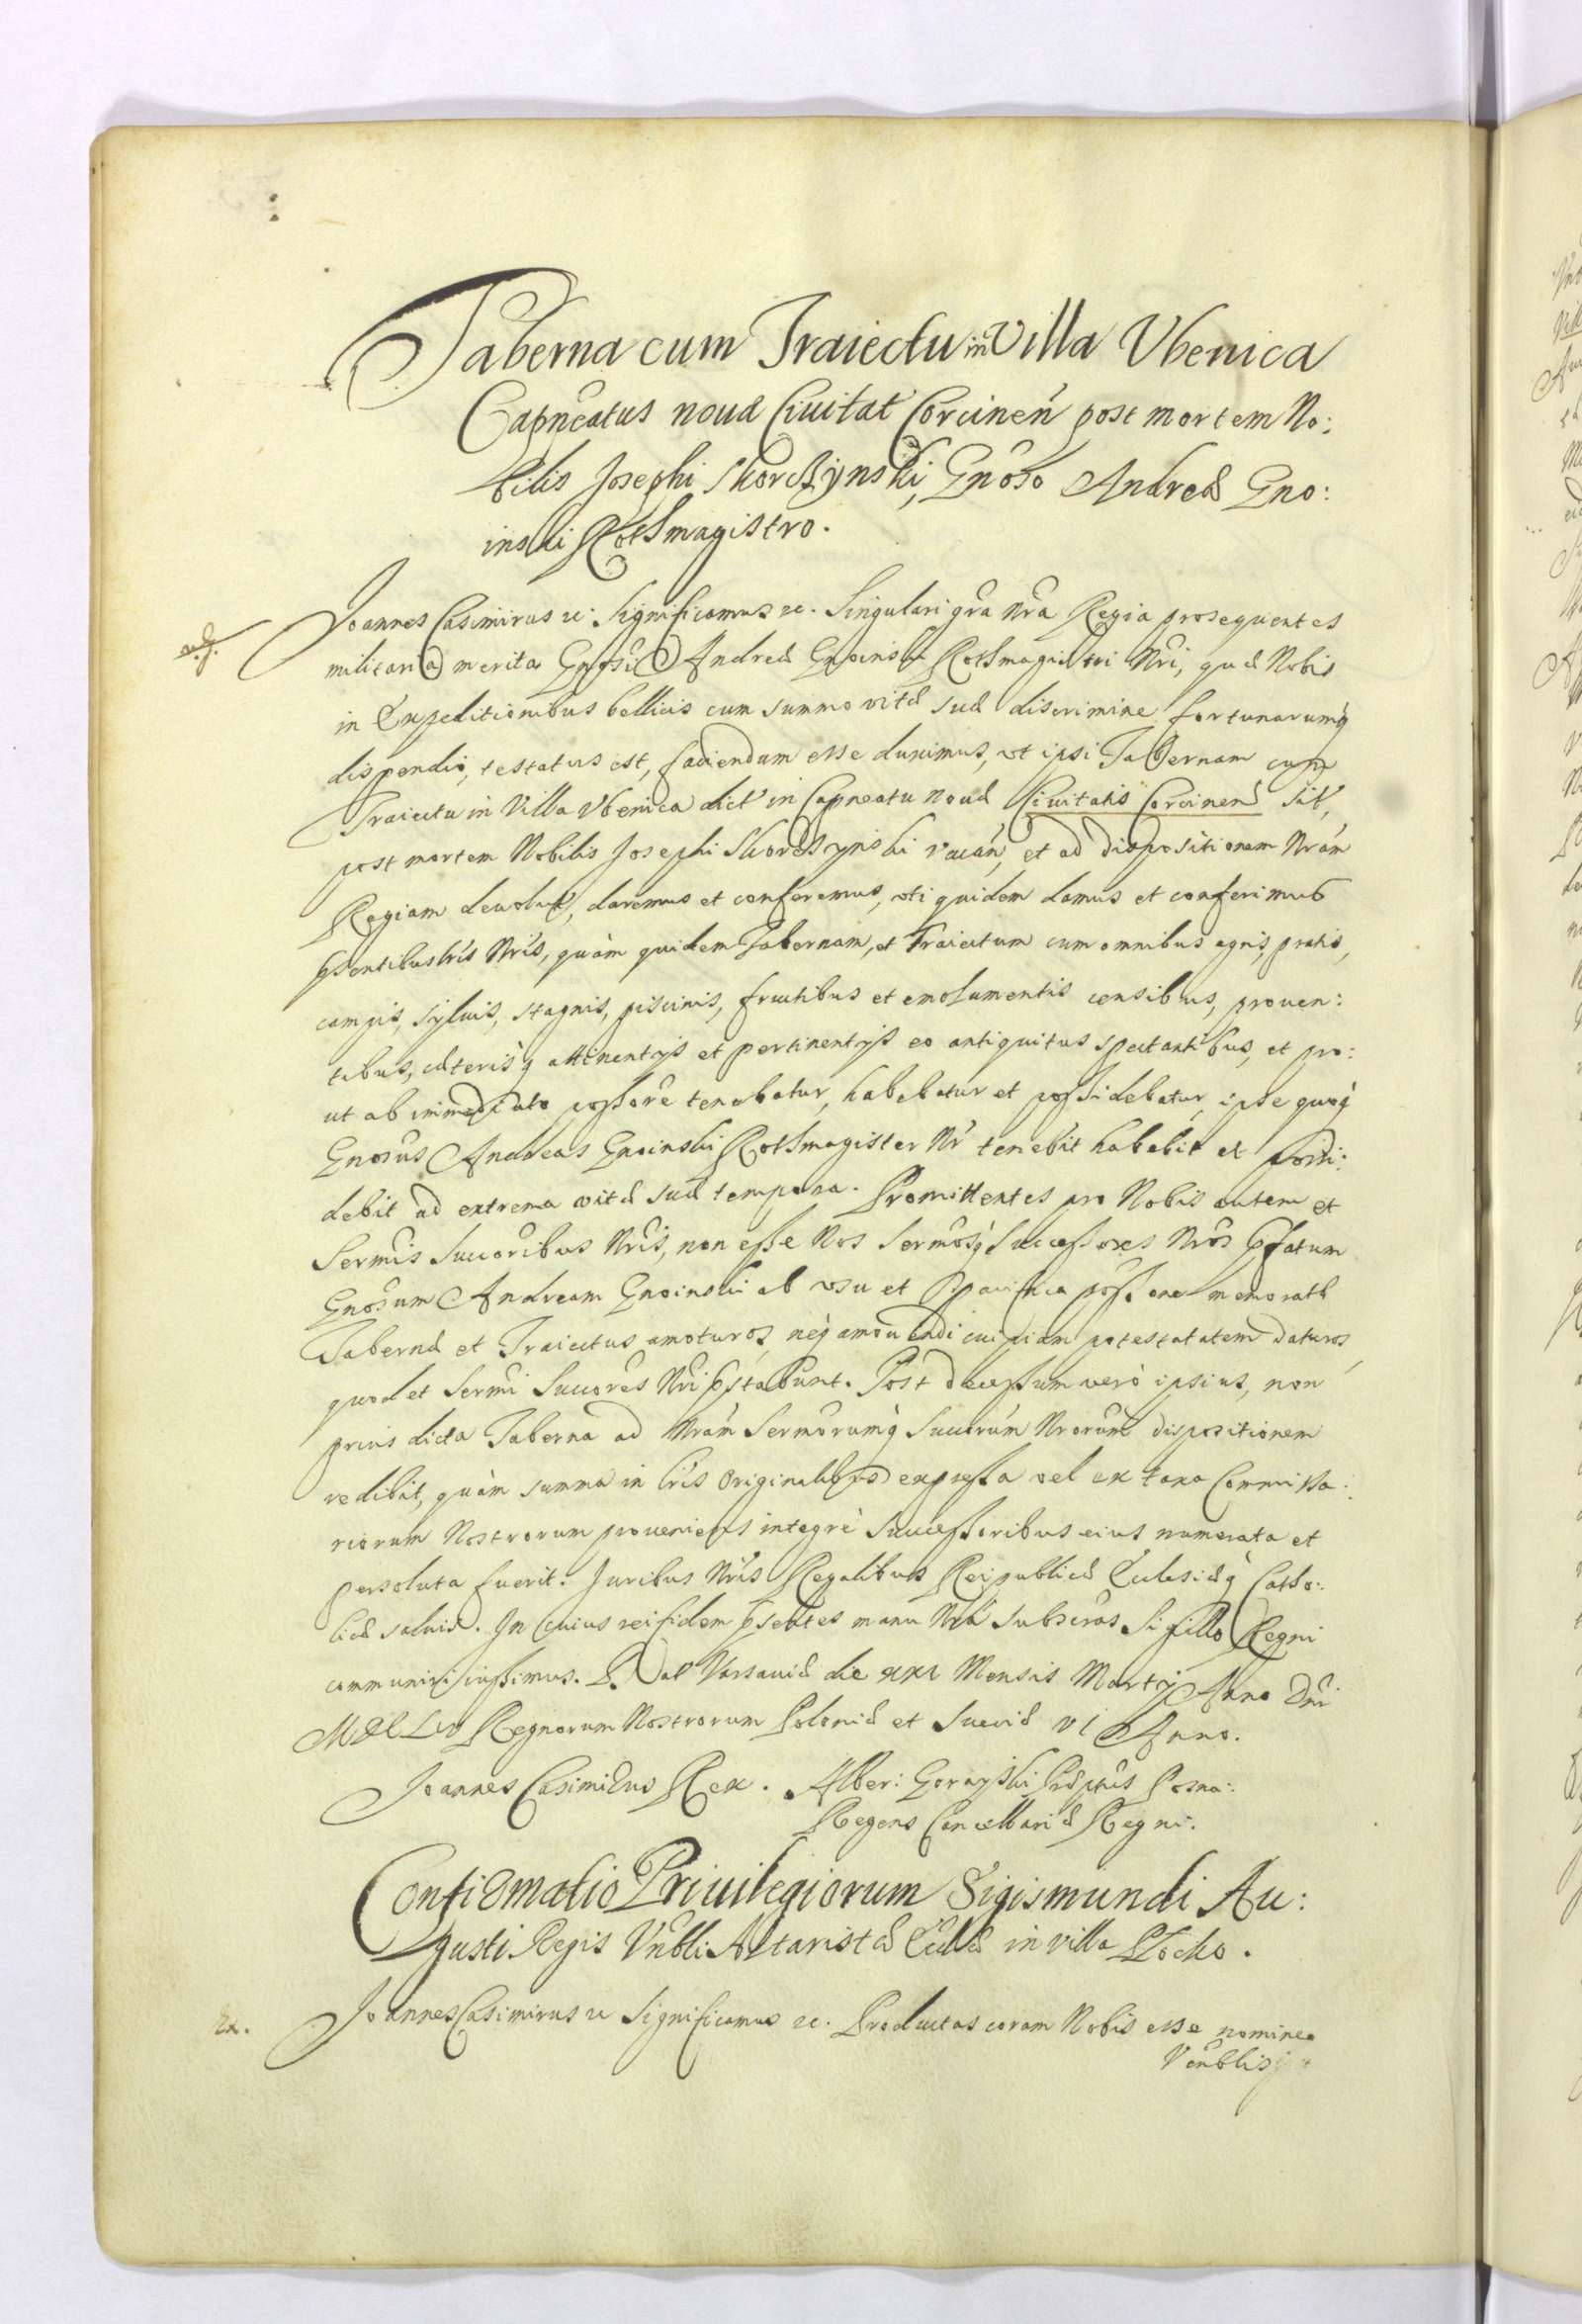 Taberna cum Traiectu in Villa Vbenica
Capneatus nouæ Ciuitat Corcinen post mortem No:
bilis Josephi Skorczynski, Gnoso Andreæ Gno:
inski Rothmagistro.
Joannes Casimirus etc. Significamus etc. Singulari gra Nra Regia prosequentes
militaria merita Gnosi Andreæ Gnoinski Rothmagistri Nri, quæ Nobis
in Expeditionibus bellicis cum summo vitæ suæ discrimine fortunarumq
dispendio, testatus est, faciendum esse duximus, vt ipsi Tabernam cum
Traiectu in Villa Vbenica dict in Capneatu nouæ Ciuitatis Corcinen sit,
post mortem Nobilis Josephi Skorczynski vacan, et ad dispositionem Nram
Regiam deuolut, daremus et conferemus, vti quidem damus et conferimus
psentibus lris Nris, quam quidem Tabernam, et Traiectum cum omnibus agris, pratis,
campis, syluis, stagnis, piscinis, fructibus et emolumentis censibus, prouen:
tibus, cæterisq attinentijs et pertinentijs eo antiquitus spectantibus, et pro:
ut ab immediato possore tenebatur, habebatur et possidebatur, ipse quoq
Gnosus Andreas Gnoinski Rothmagister Nr tenebit habebit et possi:
debit ad extrema vitæ suæ tempora. Promittentes pro Nobis autem et
Sermis Succoribus Nris, non esse Nos Sermosq Successores Nros pfatum
Gnosum Andream Gnoinski ab vsu et pacifica possone memoratæ
Tabernæ et Traiectus amoturos, neq amouendi cuipiam potestatatem daturos,
quod et Sermi Succores Nri pstabunt. Post decessum verò ipsius, non
prius dicta Taberna ad Nram Sermorumq Succorum Nrorum dispositionem
redibit, quàm summa in lris Originalibus expressa vel ex taxa Commissa:
riorum Nostrorum proueniens integrè Successoribus eius numerata et
persoluta fuerit. Juribus Nris Regalibus Reipublicæ Ecclesiæq Catho:
licæ saluis. In cuius rei fidem psentes manu Nra subscras Sigillo Regni
communiri iussimus. Dat Varsauiæ die XXI Mensis Martij Anno Dni
MDCLIV Regnorum Nostrorum Poloniæ et Sueciæ VI Anno.
Joannes Casimirus Rex. Alber: Gorayski Præptus Posna:
Regens Cancellariæ Regni.
Confirmatio Priuilegiorum Sigismundi Au:
gusti Regis Vnbli Altaristæ Ecclæ in villa Płocko.
Joannes Casimirus etc Significamus etc. Productas coram Nobis esse nomine
Venblis